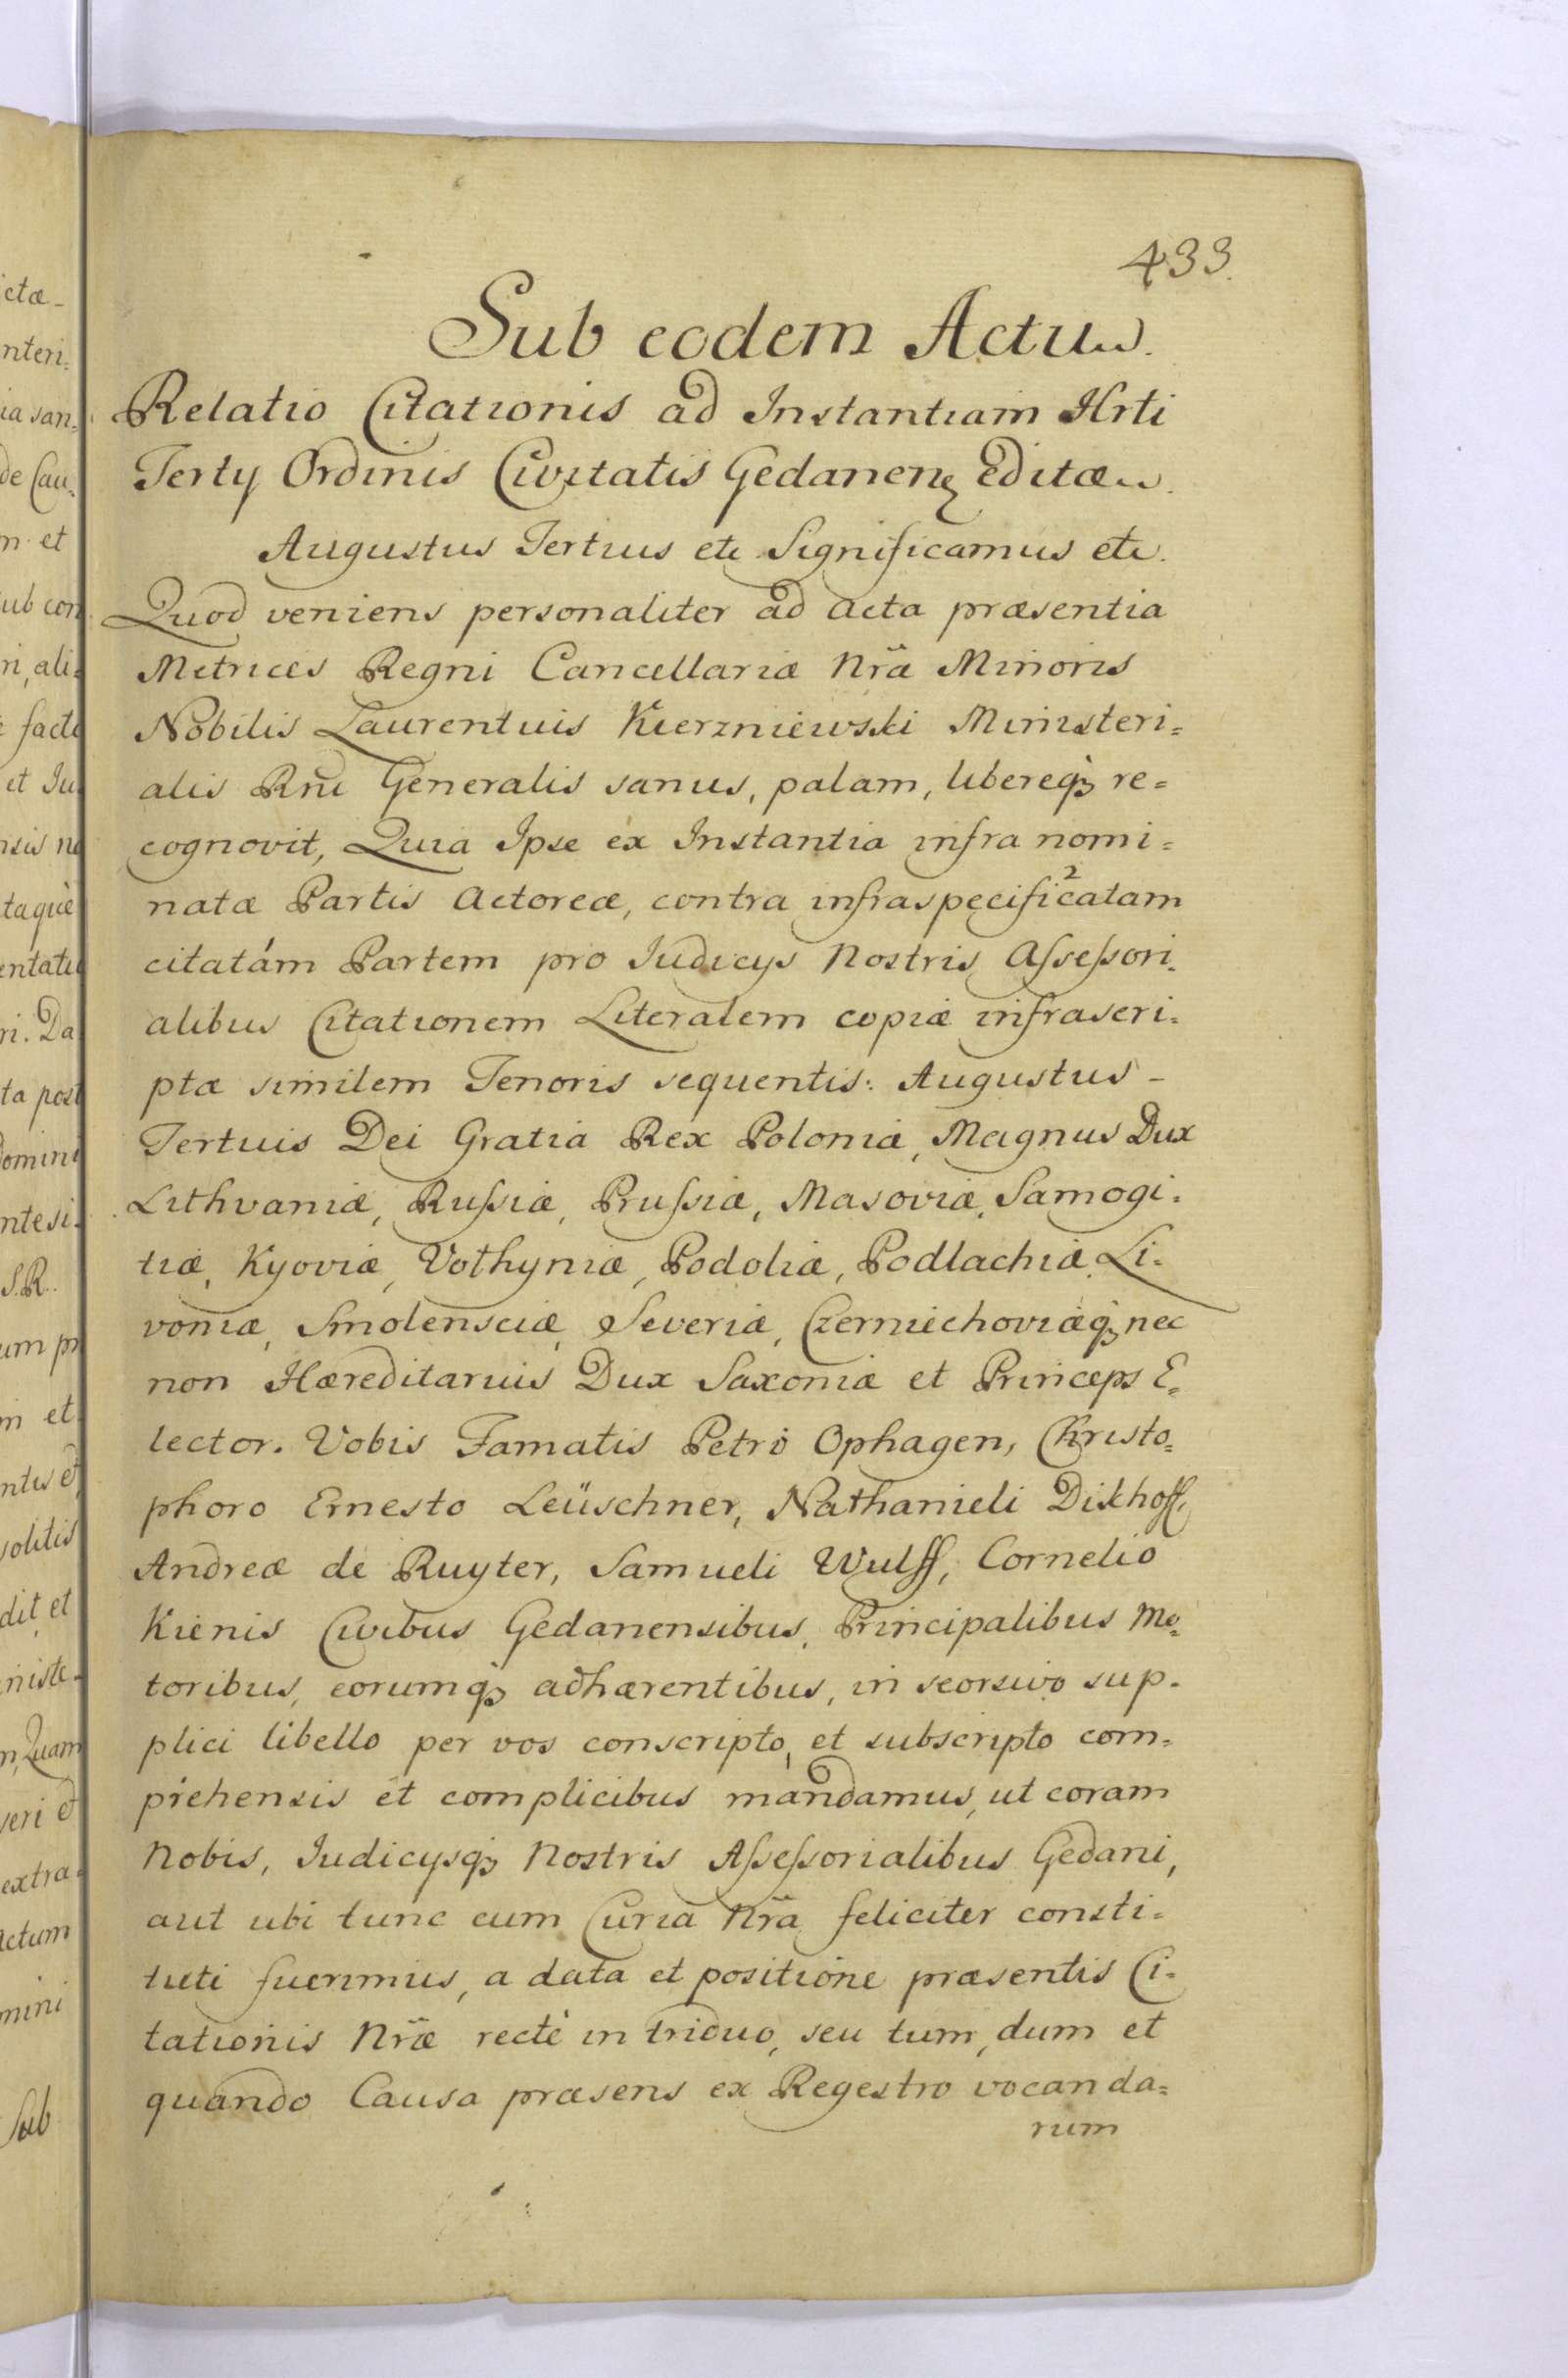 433.
Sub eodem Actu.
Relatio Citationis ad Instantiam Hrti
Tertij Ordinis Civitatis Gedanenȝ Editæ.
Augustus Tertius etc Significamus etc.
Quod veniens personaliter ad acta præsentia
Metrices Regni Cancellariæ Nrã Minoris
Nobilis Laurentius Kierzniewski Ministeri=
alis Rñi Generalis sanus, palam, libereqȝ re=
cognovit, Quia Ipse ex Instantia infra nomi=
natæ Partis Actoreæ, contra infraspecificatam
citatam Partem pro Iudicijs Nostris Aſseſsori=
alibus Citationem Literalem copiæ infrascri=
ptæ similem Tenoris sequentis: Augustus -
Tertius Dei Gratia Rex Poloniæ, Magnus Dux
Lithvaniæ, Ruſsiæ, Pruſsiæ, Masoviæ, Samogi=
tiæ, Kyoviæ, Volhyniæ, Podoliæ, Podlachiæ, Li=
voniæ, Smolensciæ, Severiæ, Czerniechoviæqȝ nec
non Hæreditarius Dux Saxoniæ et Princeps E=
lector. Vobis Famatis Petro Ophagen, Christo=
phoro Ernesto Leüschner, Nathanieli Dikhoff,
Andreæ de Ruyter, Samueli Wulff, Cornelio
Kienis Civibus Gedanensibus, Principalibus Mo=
toribus, eorumqȝ adhærentibus, in seorsivo sup=
plici libello per vos conscripto, et subscripto com=
prehensis et complicibus mandamus, ut coram
Nobis, Iudicijsqȝ Nostris Aſseſsorialibus Gedani,
aut ubi tunc cum Curia Nrã feliciter consti=
tuti fuerimus, a data et positione præsentis Ci=
tationis Nræ rectè in triduo, seu tum, dum et
quando Causa præsens ex Regestro vocanda=
rum